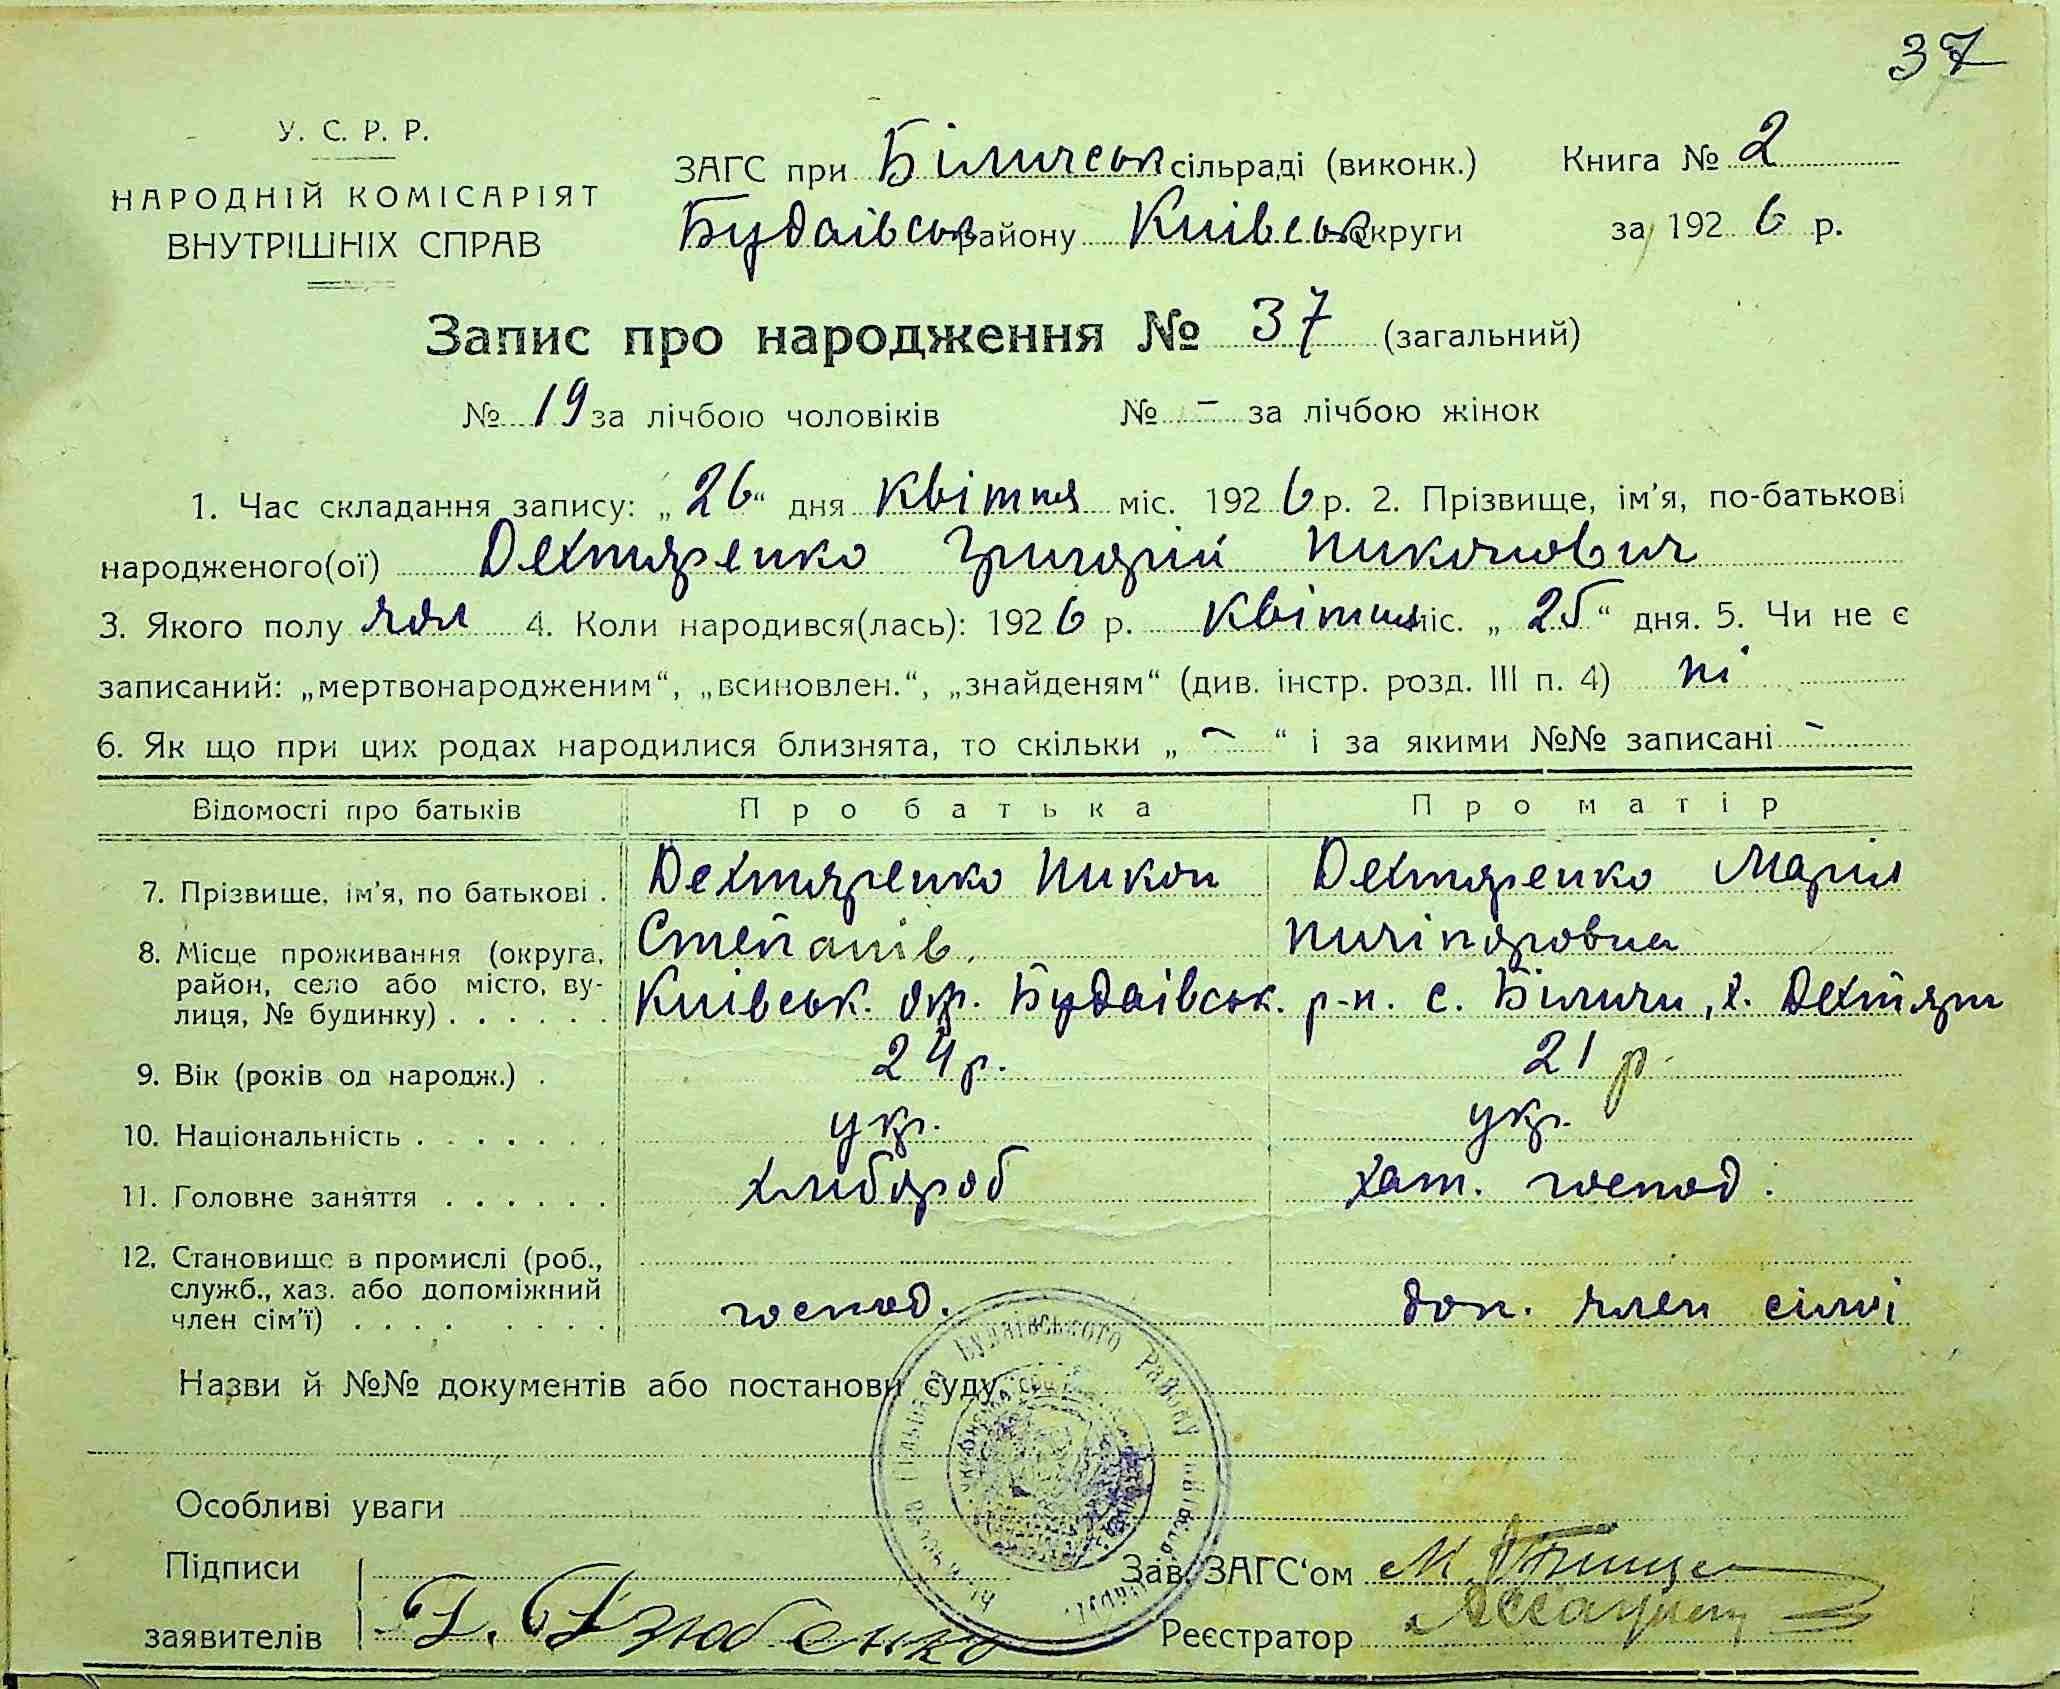 37
У. С. Р. Р.
НАРОДНІЙ КОМІСАРІЯТ
ВНУТРІШНІХ СПРАВ
ЗАГС при Білическ сільраді (виконк.) Книга № 2
Будаівськ району Киівськ округи за 1926 р.
Запис про народження № 37 (загальний)
№ 19 за лічбою чоловіків № - за лічбою жінок
1. Час складання запису: „26“ дня квітня міс. 1926 р. 2. Прізвище, ім'я, по-батькові
народженого(ої) Дехтяренко Григорій Никонович
3. Якого полу чол 4. Коли народився(лась): 1926 р. квітня міс. „25“ дня. 5. Чи не є
записаний: „мертвонародженим“, „всиновлен.“, „знайденям“ (див. інстр. розд. III п. 4) ні
6. Як що при цих родах народилися близнята, то скільки „ - “ і за якими №№ записані -
Відомості про батьків Про батька Про матір
7. Прізвище, ім'я, по батькові . Дехтяренко Никон Дехтяренко Марія
Степанів. Ничіпоровна
8. Місце проживання (округа,
район, село або місто, ву-
лиця, № будинку) . . . . . . Киівськ. окр. Будаівськ. р-н. с. Біличи, х. Дехтярі
9. Вік (років од народж.) . 24 р. 21 р
10. Національність . . . . . . . укр. укр.
11. Головне заняття . . . . . . хлибороб хат. господ.
12. Становище в промислі (роб.,
служб., хаз. або допоміжний
член сім'ї) . . . . . . . . господ. доп. член сімиі
Назви й №№ документів або постанови суду
Особливі уваги
Підписи Зав. ЗАГС'ом
заявителів Г. Дзюбенко Реєстратор
Будаівського Району